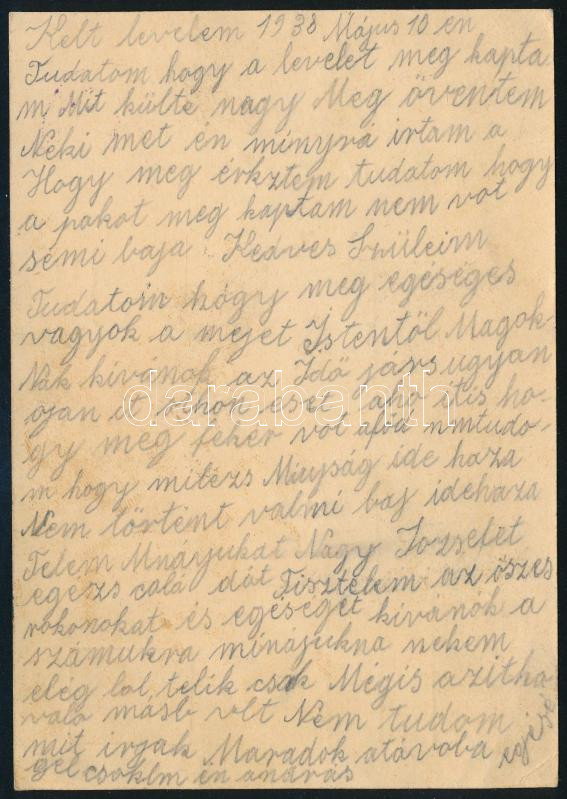 Kelt levelem 1938 Május 10 én
Tudatom hogy a levelet meg kapta
m Mit külte nagy Meg öventem
Neki met én minyra irtam a
Hogy meg érkztem tudatom hogy
a pakot meg kaptam nem vot
semi baja Kedves Szüleim
Tudatom hogy meg egéséges
vagyok a mejet Istentöl Magok
Nak kivánok az Idö járs ugyan
ojan it ithon eset aho itis ho-
gy meg fehér vot nmtudo-
m hogy mitézs Minyság ide haza
Nem történt valmi baj idehaza
Telem Mnányukat Nagy Jozsefét
egézs calá dát Tisztelem az öszes
rokonokat és egéségét kivanók a
számukra minájukna nekem
elég lol, telik csak Mégis azitho
valo masb vlt Nem tudom
mit irjak Maradok atávoba
gel csoklm én andrás
darabanth